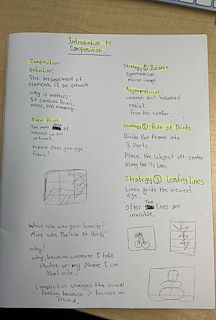 Introduction to
Composition
Composition
Definition:
The arrangement of
elements in an artwork.
Why it matters?
It controls focus,
mood, and meaning.
Focal Point:
The main of
interest in an
artwork.
Where does your eye
go
Which rule was your favorite?
Mine was the "rule of thirds"
Why?
Why, because whenever I take
photos on my phone I use
that rule.
Composition changes the visual
feeling because it focuses on
Strategy ① Balance
Symmetrical:
mirror image
Asymmetrical:
uneven but balanced
radial:
from the center
Strategy ② Rule of Thirds
Divide the frame into
3 parts.
Place the subject off-center
along the 1/3 lines.
Strategy ③ Leading lines
Lines guide the viewer's
eye.
Often the lines are
invisible.